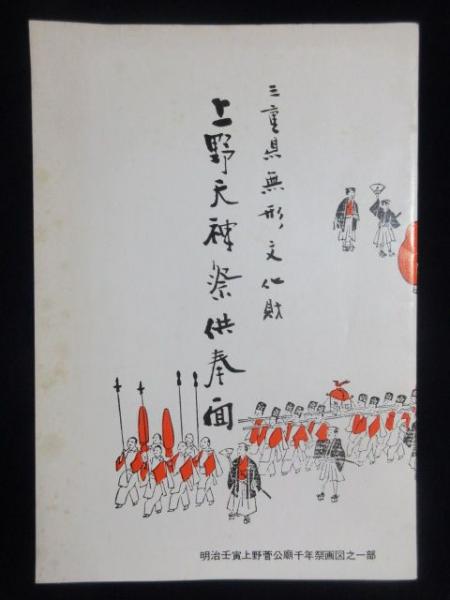 三重県無形文化財
上野天神祭供奉面
明治壬寅上野菅公廟千年祭画図之一部